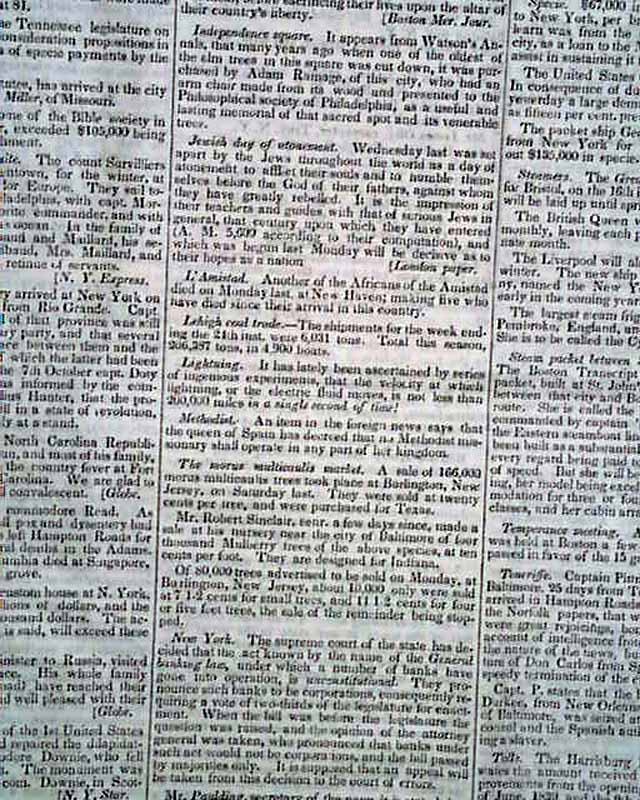 at $1.
e Tennessee legislature on
onsideration propositions in
n of specie payments by the
utee, has arrived at the city
Miller, of Missouri.
ome of the Bible society in
r, exceeded $105,000 being
The count Survilliers
ntown, for the winter, at
or Europe. They sail to-
adelphia, with capt. Mor-
onte commander, and with
ocean. In the family of
aud and Maillard, his se-
sband, Mrs. Maillard, and
retinue of servants.
[N. Y. Express.
ry arrived at New York on
from Rio Grande. Capt.
of that province was still
ry party, and that several
ce between them and the
which the latter had been
e 7th October capt. Doty
as informed by the com-
us Hunter, that the pro-
ll in a state of revolution,
ly at a stand.
North Carolina Republi-
an, and most of his family,
the country fever at Fort
Carolina. We are glad to
convalescent. [Globe.
ommodore Read. As
ll pox and dysentery had
left Hampton Roads for
ral deaths in the Adams.
umbia died at Singapore,
grove.
custom house at N. York,
lions of dollars, and the
ousand dollars. The ac-
is said, will exceed these
inister to Russia, visited
ace. His whole family
nad) have reached their
d well pleased with their
[Globe.
of the 1st United States
d repaired the dilapidat-
dore Downie, who fell
The monument was
com. Downie, in Scot-
[N. Y. Star.
before sacrificing their lives upon the altar of
their country's liberty. [Boston Mer. Jour.
Independence square. It appears from Watson's An-
nals, that many years ago when one of the oldest of
the elm trees in this square was cut down, it was pur-
chased by Adam Ramage, of this city, who had an
arm chair made from its wood and presented to the
Philosophical society of Philadelphia, as a useful and
lasting memorial of that sacred spot and its venerable
trees.
Jewish day of atonement. Wednesday last was set
apart by the Jews throughout the world as a day of
atonement to afflict their souls and to humble them-
selves before the God of their fathers, against whom
they have greatly rebelled. It is the impression of
their teachers and guides with that of serious Jews in
general, that century upon which they have entered
(A. M. 5,600 according to their computation), and
which was begun last Monday will be decisive as to
their hopes as a nation [London paper.
L'Amistad. Another of the Africans of the Amistad
died on Monday last, at New Haven; making five who
have died since their arrival in this country.
Lehigh coal trade.—The shipments for the week end-
ing the 24th inst. were 6,031 tons. Total this season,
206,387 tons, in 4,900 boats.
Lightning. It has lately been ascertained by series
of ingenious experiments, that the velocity at which
lightning, or the electric fluid moves, is not less than
200,000 miles in a single second of time!
Methodist. An item in the foreign news says that
the queen of Spain has decreed that no Methodist mis-
sionary shall operate in any part of her kingdom.
The morus multicaulis market. A sale of 166,000
morus multicaulis trees took place at Burlington, New
Jersey, on Saturday last. They were sold at twenty
cents per tree, and were purchased for Texas.
Mr. Robert Sinclair, senr. a few days since, made a
sale at his nursery near the city of Baltimore of four
thousand Mulberry trees of the above species, at ten
cents per foot. They are designed for Indiana.
Of 80,000 trees advertised to be sold on Monday, at
Burlington, New Jersey, about 10,000 only were sold
at 7 1-2 cents for small trees, and 11 1-2 cents for four
or five feet trees, the sale of the remainder being stop-
ped.
New York. The supreme court of the state has de-
cided that the act known by the name of the General
banking law, under which a number of banks have
gone into operation, is unconstitutional. They pro-
nounce such banks to be corporations, consequently re-
quiring a vote of two-thirds of the legislature for enact-
ment. When the bill was before the legislature the
question was raised, and the opinion of the attorney
general was taken, who pronounced that banks under
such act would not be corporations, and the bill passed
by majorities only. It is supposed that an appeal will
be taken from this decision to the court of errors.
Mr. Paulding, secretary of the
Specie. $67,000
to New York, per
learn was from the
city, as a loan to the
assist in sustaining it
The United States
In consequence of do
yesterday a large dem
as fifteen per cent. pre
The packet ship Ge
from New York for
out $135,000 in specie
Steamers. The Grea
for Bristol, on the 16th
will be laid up until spr
The British Queen
monthly, leaving each p
nate month.
The Liverpool will al
winter. The new ship
ny, named the New Y
early in the coming year
The largest steam fri
Pembroke, England, un
She is to be called the Cy
Steam packet between
The Boston Transcript
packet, built at St. John
between that city and B
route. She is called the
commanded by captain
the Eastern steamboat line
been built as a substantial
every regard being paid
of speed. But she will be
ing, her model being excel
modation for three or fou
classes, and her cabin arr
Temperance meeting. A
was held at Boston a few
passed in favor of the 15 g
Teneriffe. Captain Pin
Baltimore, 25 days from T
arrived in Hampton Roads
the Norfolk papers, that w
were great rejoicings, bec
account of intelligence from
the nature of the news, bu
ture of Don Carlos from S
speedy termination of the
Capt. P. states that the
Duskee, from New Orleans
of Baltimore, was seized a
consul and the Spanish aut
ing a slaver.
Tolls. The Harrisburg
states the amount received
provements from the openin